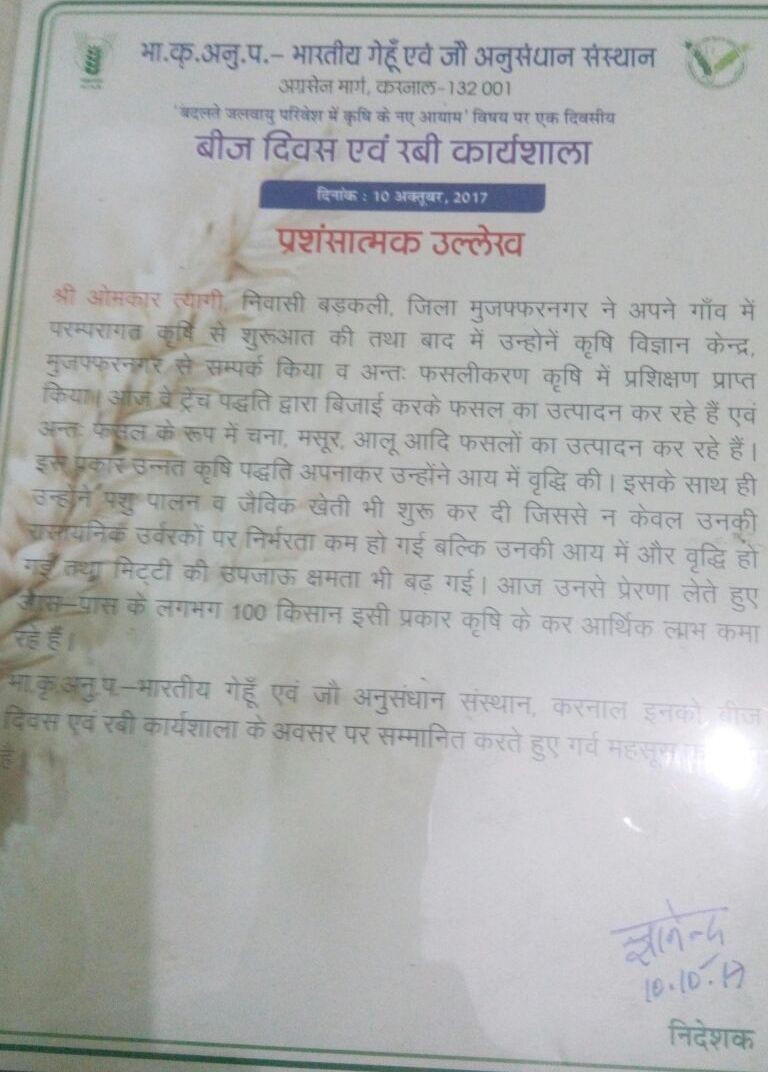 भा.कृ.अनु.प.– भारतीय गेहूँ एवं जौ अनुसंधान संस्थान
अग्रसेन मार्ग, करनाल–132 001
'बदलते जलवायु परिवेश में कृषि के नए आयाम' विषय पर एक दिवसीय
बीज दिवस एवं रबी कार्यशाला
दिनांक : 10 अक्तूबर, 2017
प्रशंसात्मक उल्लेख
श्री ओमकार त्यागी, निवासी बड़कली, जिला मुजफ्फरनगर ने अपने गाँव में
परम्परागत कृषि से शुरूआत की तथा बाद में उन्होनें कृषि विज्ञान केन्द्र,
मुजफ्फरनगर से सम्पर्क किया व अन्तः फसलीकरण कृषि में प्रशिक्षण प्राप्त
किया। आज वे ट्रेंच पद्धति द्वारा बिजाई करके फसल का उत्पादन कर रहे हैं एवं
अन्तः फसल के रूप में चना, मसूर, आलू आदि फसलों का उत्पादन कर रहे हैं।
इस प्रकार उन्नत कृषि पद्धति अपनाकर उन्होंने आय में वृद्धि की। इसके साथ ही
उन्होंने पशु पालन व जैविक खेती भी शुरू कर दी जिससे न केवल उनकी
रासायनिक उर्वरकों पर निर्भरता कम हो गई बल्कि उनकी आय में और वृद्धि हो
गई तथा मिट्टी की उपजाऊ क्षमता भी बढ़ गई। आज उनसे प्रेरणा लेते हुए
आस–पास के लगभग 100 किसान इसी प्रकार कृषि के कर आर्थिक लाभ कमा
रहे हैं।
भा.कृ.अनु.प.–भारतीय गेहूँ एवं जौ अनुसंधान संस्थान, करनाल इनको बीज
दिवस एवं रबी कार्यशाला के अवसर पर सम्मानित करते हुए गर्व महसूस
है।
ज्ञानेन्द्र
10.10.17
निदेशक